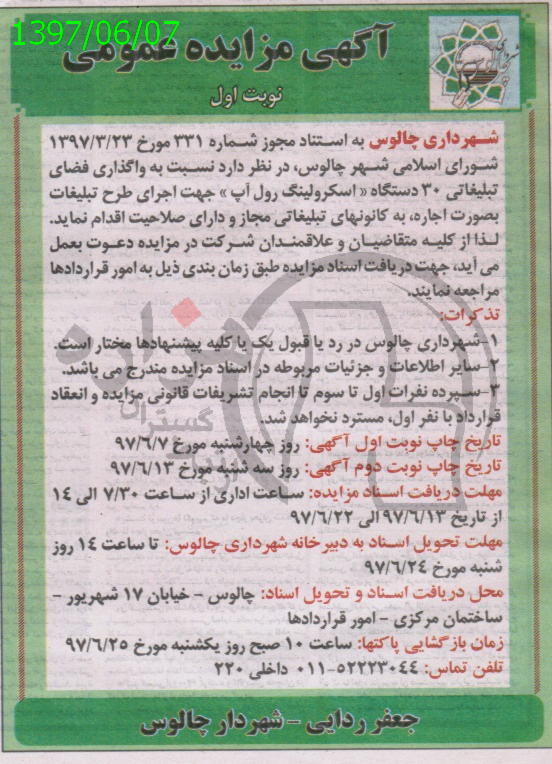 1397/06/07
آگهی مزایده عمومی
نوبت اول
شهرداری چالوس به استناد مجوز شماره ۳۳۱ مورخ ۱۳۹۷/۳/۲۳
شورای اسلامی شهر چالوس، در نظر دارد نسبت به واگذاری فضای
تبلیغاتی ۳۰ دستگاه « اسکرولینگ رول آپ » جهت اجرای طرح تبلیغات
بصورت اجاره، به کانونهای تبلیغاتی مجاز و دارای صلاحیت اقدام نماید.
لذا از کلیه متقاضیان و علاقمندان شرکت در مزایده دعوت بعمل
می آید، جهت دریافت اسناد مزایده طبق زمان بندی ذیل به امور قراردادها
مراجعه نمایند.
تذکرات:
۱-شهرداری چالوس در رد یا قبول یک یا کلیه پیشنهادها مختار است.
۲-سایر اطلاعات و جزئیات مربوطه در اسناد مزایده مندرج می باشد.
۳-سپرده نفرات اول تا سوم تا انجام تشریفات قانونی مزایده و انعقاد
قرارداد با نفر اول، مسترد نخواهد شد.
تاریخ چاپ نوبت اول آگهی: روز چهارشنبه مورخ ۹۷/۶/۷
تاریخ چاپ نوبت دوم آگهی: روز سه شنبه مورخ ۹۷/۶/۱۳
مهلت دریافت اسناد مزایده: ساعت اداری از ساعت ۷/۳۰ الی ۱۴
از تاریخ ۹۷/۶/۱۳ الی ۹۷/۶/۲۲
مهلت تحویل اسناد به دبیرخانه شهرداری چالوس: تا ساعت ۱۴ روز
شنبه مورخ ۹۷/۶/۲۴
محل دریافت اسناد و تحویل اسناد: چالوس - خیابان ۱۷ شهریور -
ساختمان مرکزی - امور قراردادها
زمان بازگشایی پاکتها: ساعت ۱۰ صبح روز یکشنبه مورخ ۹۷/۶/۲۵
تلفن تماس: ۵۲۲۲۳۰۴۴-۰۱۱ داخلی ۲۲۰
جعفر ردایی - شهردار چالوس
هزاره
گستران